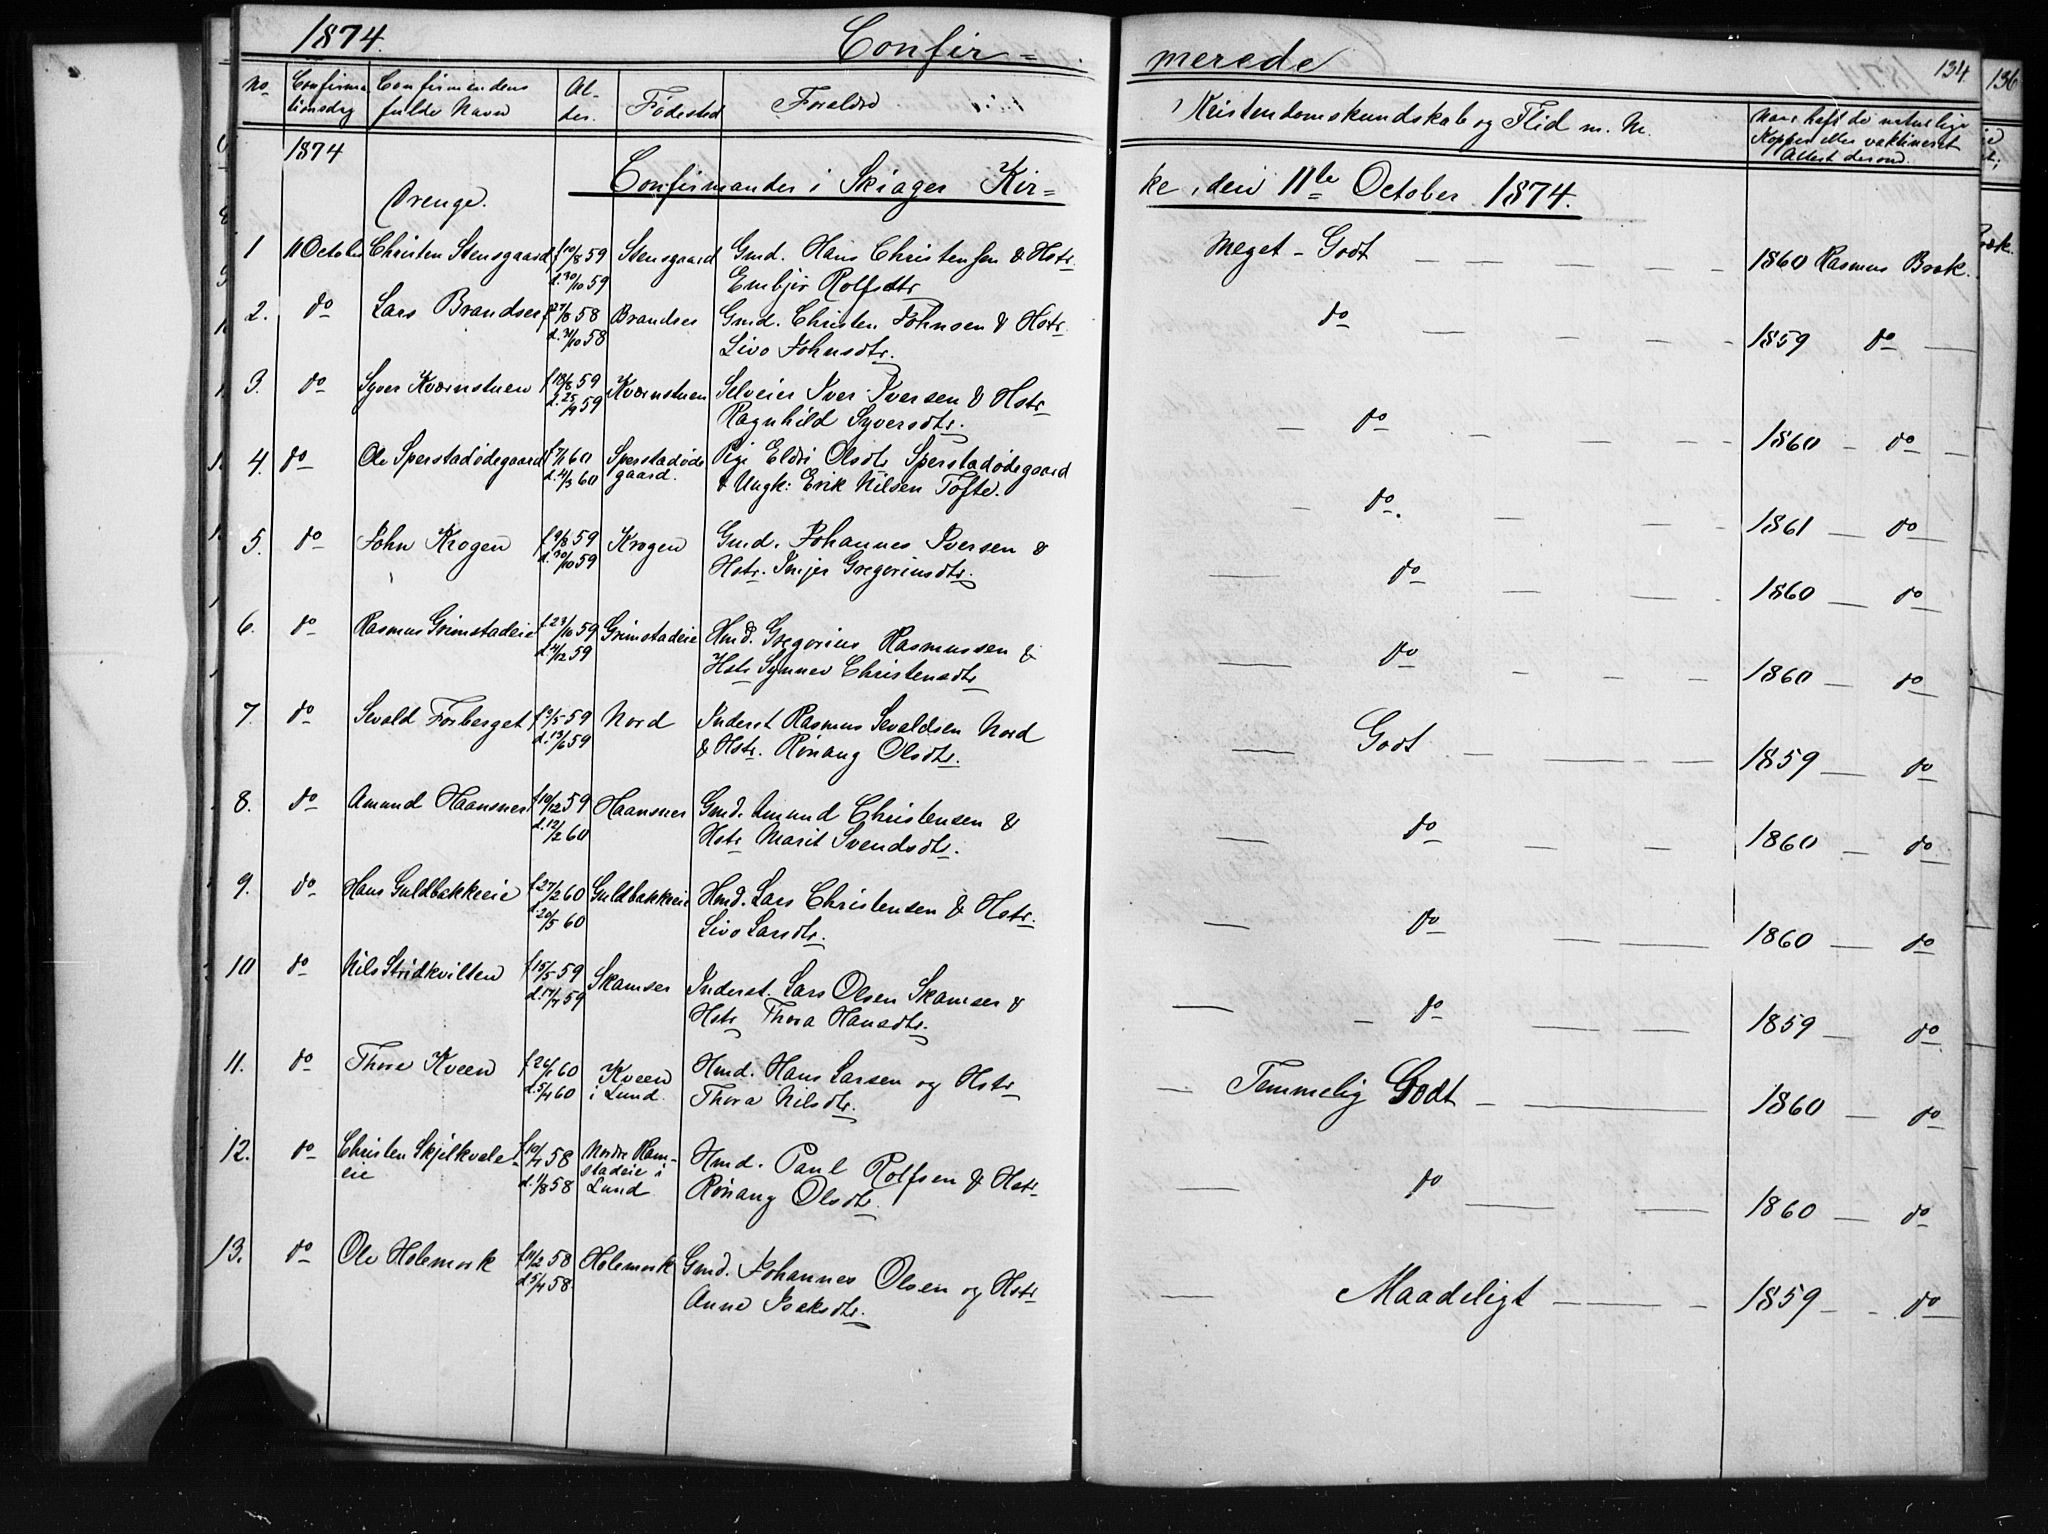 1874. Confir= merede 134 136
No. Confirma Confirmendens Al- Fødested Forældre Kristendomskundskab og Flid m. M. Naar haft de naturlige
tionsdag fulde Navn der. Kopper eller vaktineret
Attest derom.
1874
Confirmander i Skiager Kir= ke, den 11te October 1874.
Drenge.
1 11 October Christen Stensgaard f 10/8 59 Stensgaard Gmd. Hans Christensen & Hstr. Meget - Godt 1860 Rasmus Brek.
d. 30/10 59 Embjør Rolfsdtr
2. do Lars Brandser f 27/8 58 Brandser Gmd. Christen Johnsen & Hstr. do 1859 do
d. 31/10 58 Livo Johnsdtr.
3. do Syver Kværnstuen f 18/8 59 Kværnstuen Selveier Iver Iversen & Hstr do 1860 do
d. 25/9 59 Ragnhild Syversdtr.
4. do Ole Sperstadødegaard f 7/1 60 Sperstadøde Pige Eldri Olsdtr Sperstadødegaard do. 1861 do
d. 4/3 60 gaard. & Ungk: Erik Nilsen Tofte.
5. do John Krogen f 9/8 59 Krogen Gmd. Johannes Iversen & do 1860 do
d. 30/10 59 Hstr. Injer Gregoriusdtr.
6. do Rasmus Grimstadeie f 23/10 59 Grimstadeie Hmd. Gregorius Rasmussen & do 1860 do
d. 4/12 59 Hstr Synnev Christensdtr
7. do Sevald Forberget f 9/5 59 Nord Inderst Rasmus Sevaldsen Nord Godt 1859 do
d. 13/6 59 & Hstr. Rønaug Olsdtr.
8. do Amund Haansner f 19/12 59 Haansner Gmd. Amund Christensen & do 1860 do
d. 12/2 60 Hstr Marit Svendsdtr.
9. do Hans Guldbakkeie f 27/2 60 Guldbakkeie Hmd. Lars Christensen & Hstr. do 1860 do
d. 20/5 60 Livo Larsdtr.
10 do Nils Stridkvilten f 15/5 59 Skamser Inderst. Lars Olsen Skamser & do 1859 do
d. 17/7 59 Hstr Thora Hansdtr.
11. do Thore Kveen f 26/1 60 Kveen Hmd. Hans Larsen og Hstr Temmelig Godt 1860 do
d. 5/4 60 i Lund. Thora Nilsdtr.
12. do Christen Skjelkvale f 10/4 58 Nordre Ram- Hmd. Paul Rolfsen & Hstr do 1860 do
eie d. 1/8 58 stadeie i Rønaug Olsdtr.
Lund
13. do Ole Holemork f 11/2 58 Holemork Gmd. Johannes Olsen og Hstr Maadeligt 1859 do
d. 5/4 58. Anne Isaksdtr.